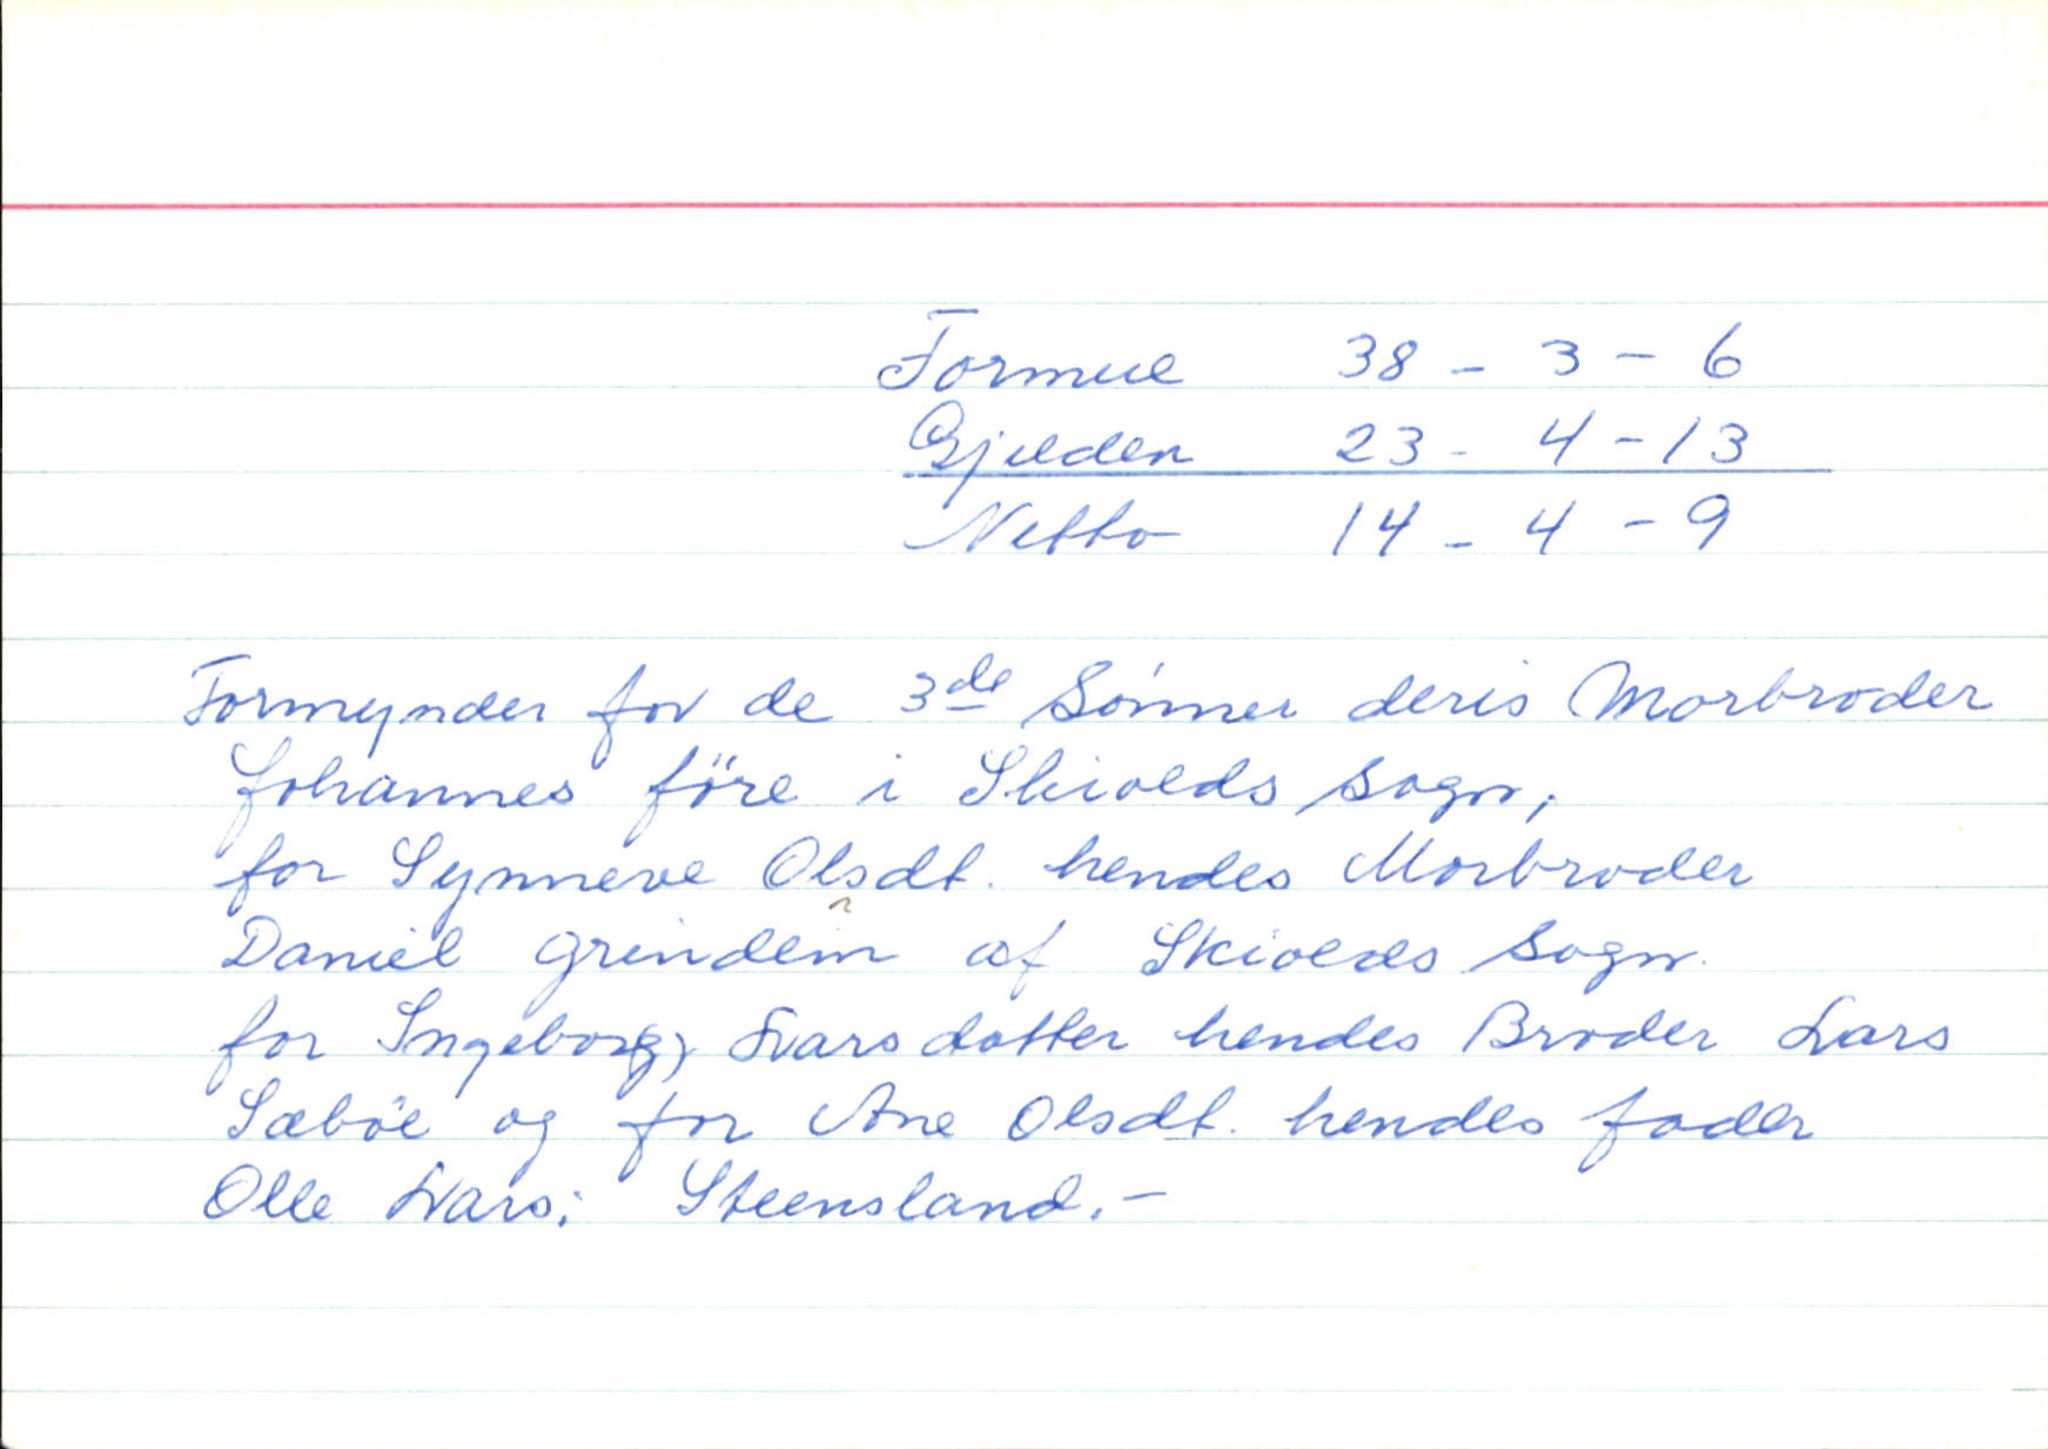 Formue 38 - 3 - 6
Gjelden 23 - 4 - 13
Netto 14 - 4 - 9
Formynder for de 3de Sønner deris Morbroder
Johannes före i Skiolds Sogn,
for Synneve Olsdt. hendes Morbroder
Daniel Grindem af Skiolds Sogn.
for Ingeborg, Ivarsdotter hendes Broder Lars
Sæbøe og for Ane Olsdt. hendes fader
Olle Ivars: Steensland. -